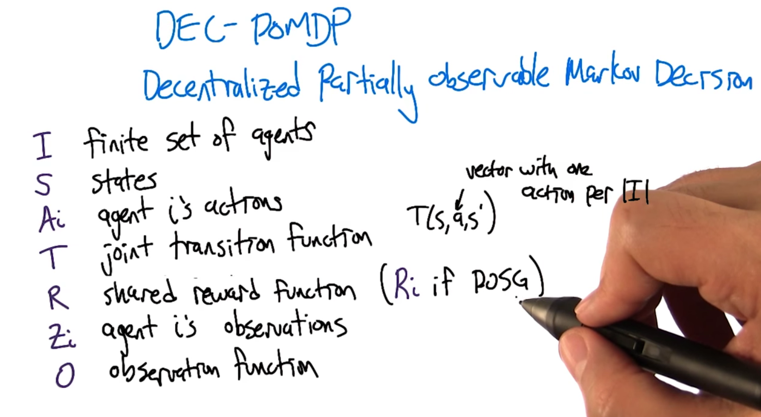 DEC-POMDP
Decentralized Partially observable Markov Decision
I finite set of agents
S states
Ai agent i's actions
T joint transition function T(s,a,s')
vector with one
action per |I|
R shared reward function (Ri if POSG)
Zi agent i's observations
O observation function